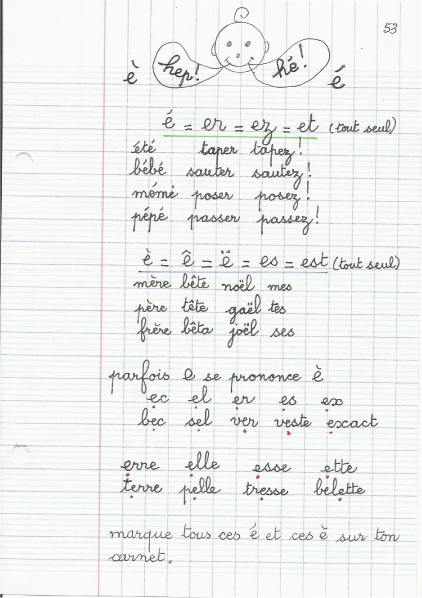 53
è hep! hé! é
é = er = ez = et (tout seul)
été taper tapez!
bébé sauter sautez!
mémé poser posez!
pépé passer passez!
è = ê = ë = es = est (tout seul)
mère bête noël mes
père tête gaël tes
frère bêta joël ses
parfois e se prononce è
ec el er es ex
bec sel ver veste exact
erre elle esse ette
terre pelle tresse belette
marque tous ces é et ces è sur ton
carnet.